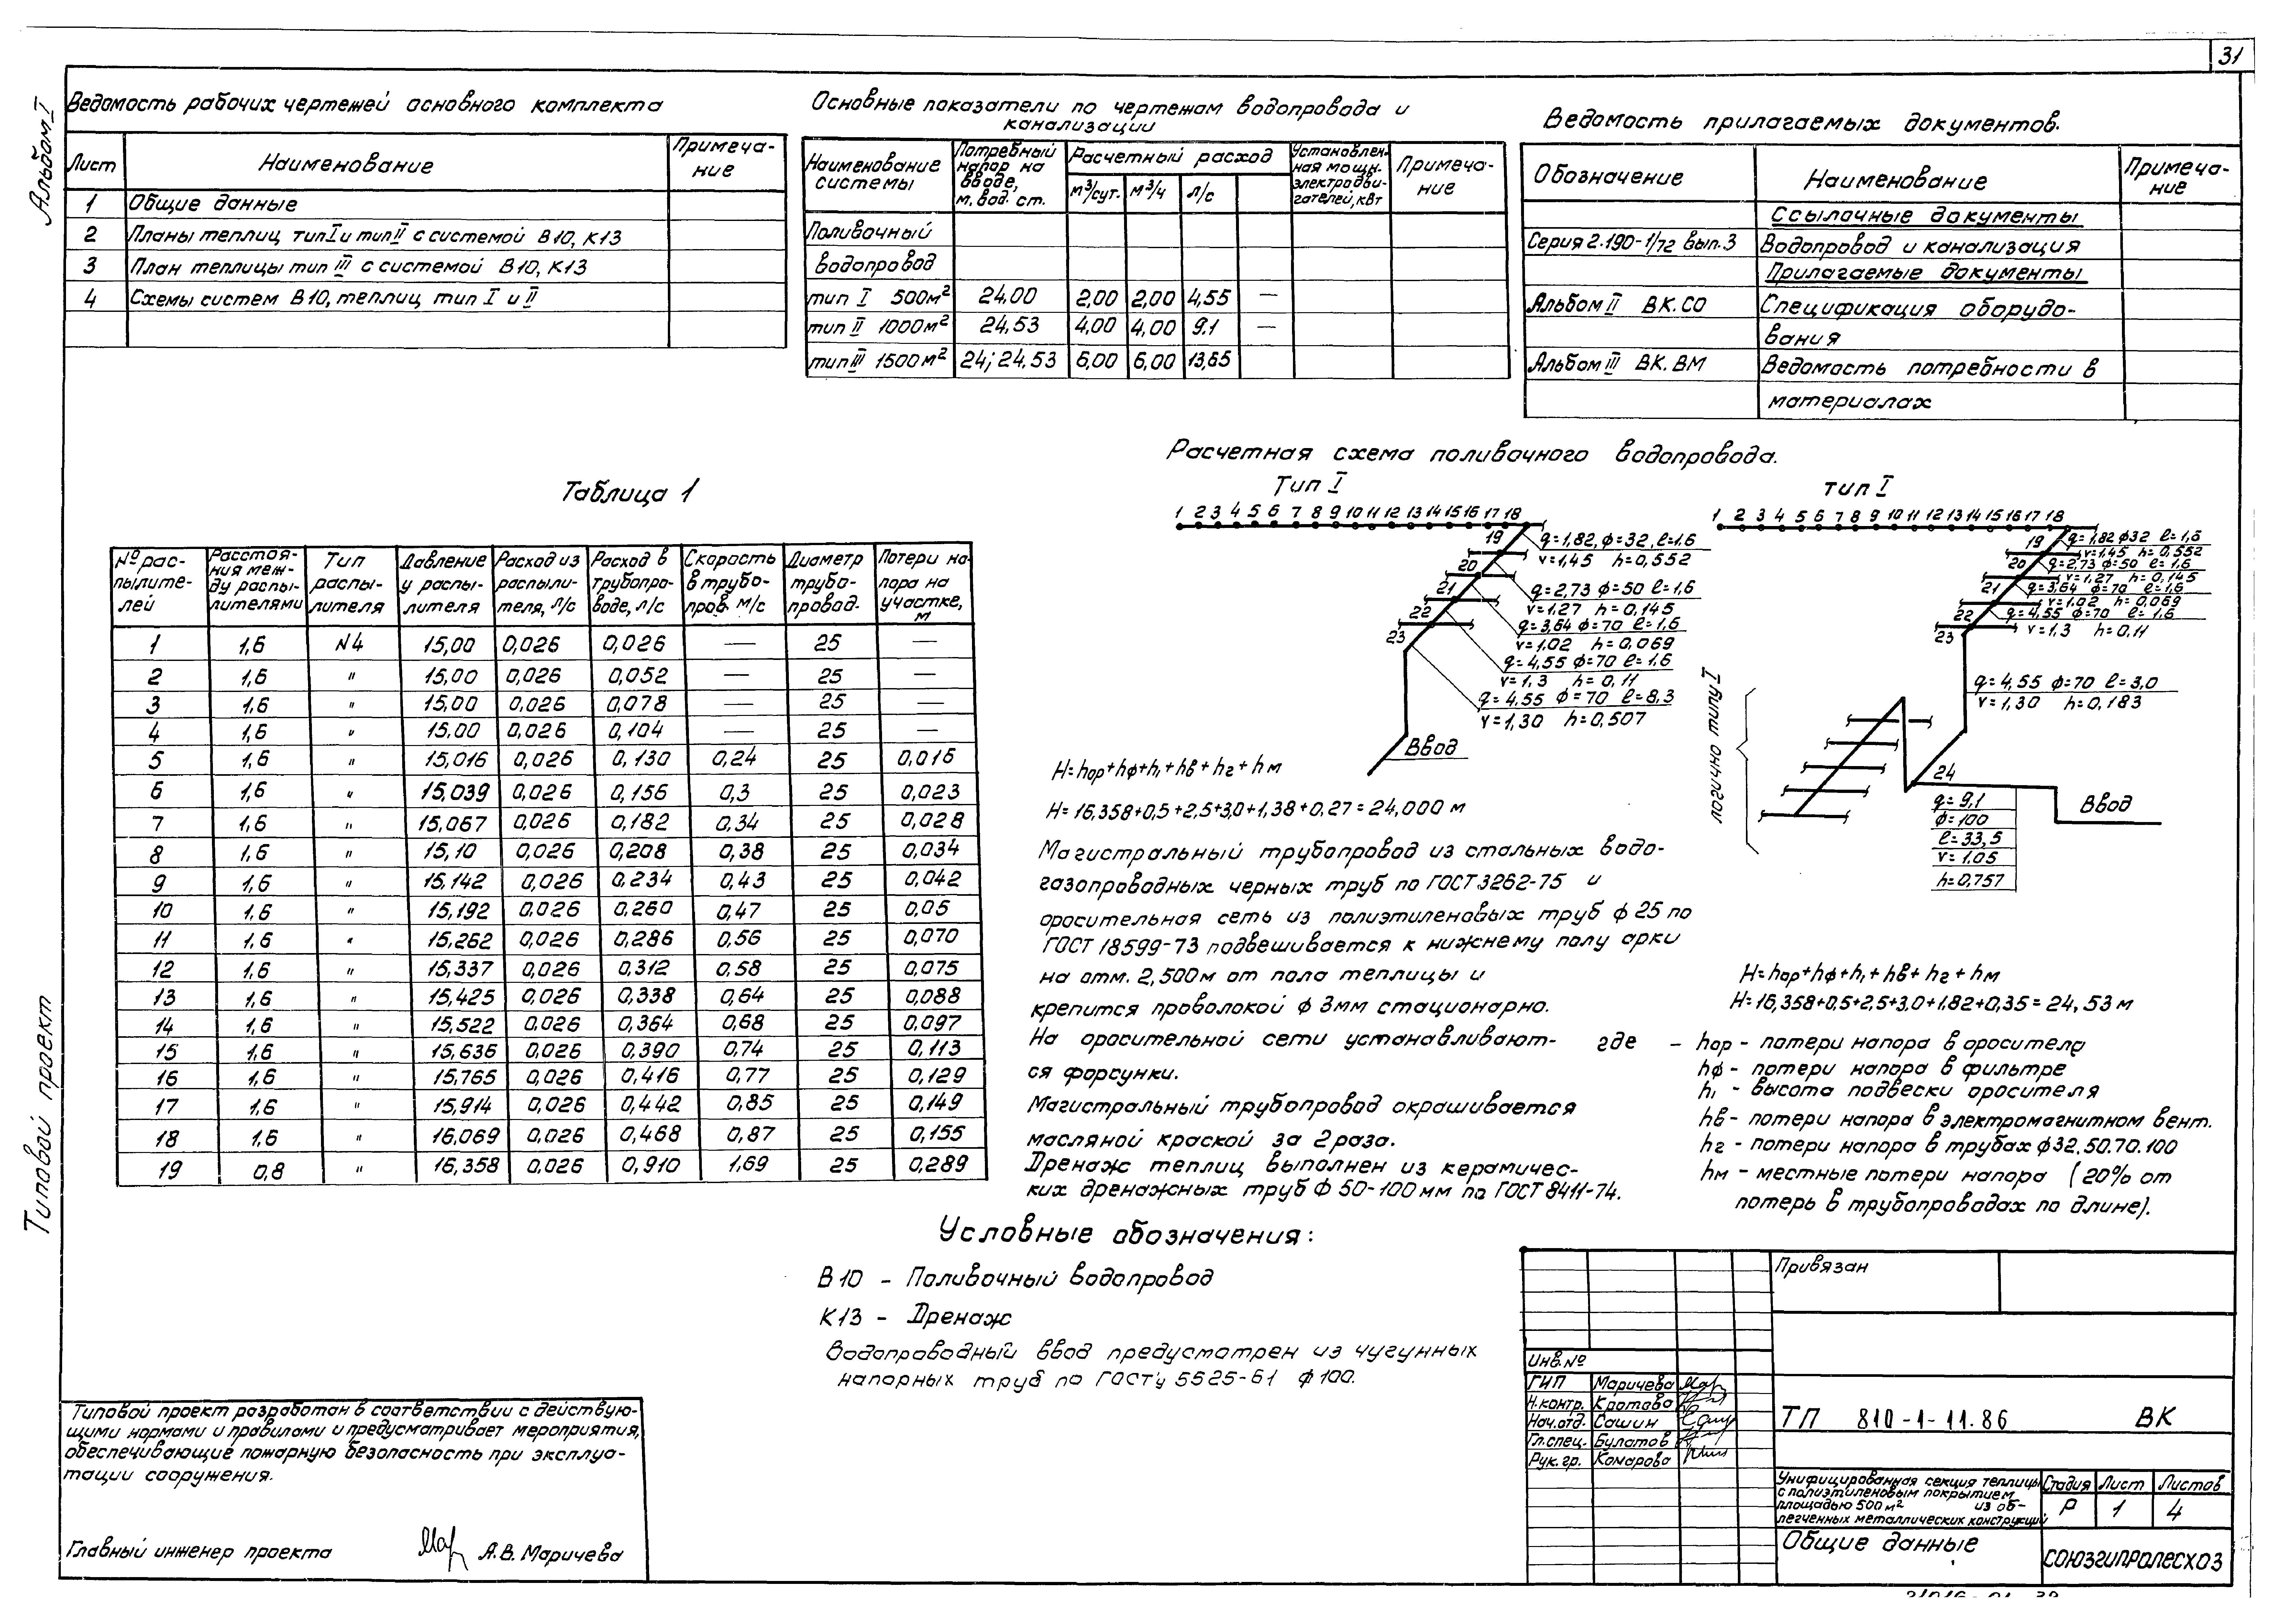 31
Альбом I
Типовой проект
Ведомость рабочих чертежей основного комплекта
Лист Наименование Примеча-
ние
1 Общие данные
2 Планы теплиц тип I и тип II с системой В10, К13
3 План теплицы тип III с системой В10, К13
4 Схемы систем В10, теплиц тип I и II
Основные показатели по чертежам водопровода и
канализации
Наименование
системы
Потребный
напор на
вводе,
м. вод. ст.
Расчетный расход
м³/сут. м³/ч л/с
Установлен-
ная мощн.
электродви-
гателей, кВт
Примеча-
ние
Поливочный
водопровод
тип I 500м² 24,00 2,00 2,00 4,55 —
тип II 1000м² 24,53 4,00 4,00 9.1 —
тип III 1500м² 24; 24,53 6,00 6,00 13,65
Ведомость прилагаемых документов.
Обозначение Наименование Примеча-
ние
Ссылочные документы
Серия 2.190-1/72 вып. 3 Водопровод и канализация
Прилагаемые документы
Альбом II ВК.СО Спецификация оборудо-
вания
Альбом III ВК.ВМ Ведомость потребности в
материалах
Таблица 1
№ рас-
пылите-
лей
Расстоя-
ния меж-
ду распы-
лителями
Тип
распы-
лителя
Давление
у распы-
лителя
Расход из
распыли-
теля, л/с
Расход в
трубопро-
воде, л/с
Скорость
в трубо-
пров. м/с
Диаметр
трубо-
провод.
Потери на-
пора на
участке,
м
1 1,6 N4 15,00 0,026 0,026 — 25 —
2 1,6 " 15,00 0,026 0,052 — 25 —
3 1,6 " 15,00 0,026 0,078 — 25 —
4 1,6 " 15,00 0,026 0,104 — 25 —
5 1,6 " 15,016 0,026 0,130 0,24 25 0,016
6 1,6 " 15,039 0,026 0,156 0,3 25 0,023
7 1,6 " 15,067 0,026 0,182 0,34 25 0,028
8 1,6 " 15,10 0,026 0,208 0,38 25 0,034
9 1,6 " 15,142 0,026 0,234 0,43 25 0,042
10 1,6 " 15,192 0,026 0,260 0,47 25 0,05
11 1,6 " 15,262 0,026 0,286 0,56 25 0,070
12 1,6 " 15,337 0,026 0,312 0,58 25 0,075
13 1,6 " 15,425 0,026 0,338 0,64 25 0,088
14 1,6 " 15,522 0,026 0,364 0,68 25 0,097
15 1,6 " 15,636 0,026 0,390 0,74 25 0,113
16 1,6 " 15,765 0,026 0,416 0,77 25 0,129
17 1,6 " 15,914 0,026 0,442 0,85 25 0,149
18 1,6 " 16,069 0,026 0,468 0,87 25 0,155
19 0,8 " 16,358 0,026 0,910 1,69 25 0,289
Расчетная схема поливочного водопровода.
Тип I
1 2 3 4 5 6 7 8 9 10 11 12 13 14 15 16 17 18
19
20
21
22
23
q=1,82, ф=32, l=1.6
v=1,45 h=0,552
q=2,73 ф=50 l=1,6
v=1.27 h=0,145
q=3,64 ф=70 l=1.6
v=1.02 h=0,069
q=4,55 ф=70 l=1.6
v=1,3 h=0,11
q=4,55 ф=70 l=8,3
v=1,30 h=0,507
Ввод
тип I
1 2 3 4 5 6 7 8 9 10 11 12 13 14 15 16 17 18
19
20
21
22
23
q=1,82 ф32 l=1,6
v=1,45 h=0,552
q=2,73 ф=50 l=1,6
v=1,27 h=0,145
q=3,64 ф=70 l=1.6
v=1.02 h=0,069
q=4,55 ф=70 l=1,6
v=1,3 h=0,11
q=4,55 ф=70 l=3,0
v=1,30 h=0,183
Аналогично типу I
24
q=9,1
ф=100
l=33,5
v=1.05
h=0,757
Ввод
H=hор+hф+h₁+hв+hг+hм
H=16,358+0,5+2,5+3,0+1,38+0,27=24,000 м
Магистральный трубопровод из стальных водо-
газопроводных черных труб по ГОСТ 3262-75 и
оросительная сеть из полиэтиленовых труб ф 25 по
ГОСТ 18599-73 подвешивается к нижнему полу арки
на отм. 2,500м от пола теплицы и
крепится проволокой ф 3мм стационарно.
На оросительной сети устанавливают-
ся форсунки.
Магистральный трубопровод окрашивается
масляной краской за 2 раза.
Дренаж теплиц выполнен из керамичес-
ких дренажных труб ф 50-100 мм по ГОСТ 8411-74.
H=hор+hф+h₁+hв+hг+hм
H=16,358+0,5+2,5+3,0+1,82+0,35=24,53 м
где – hор – потери напора в оросителе
hф – потери напора в фильтре
h₁ – высота подвески оросителя
hв – потери напора в электромагнитном вент.
hг – потери напора в трубах ф32.50.70.100
hм – местные потери напора (20% от
потерь в трубопроводах по длине).
Условные обозначения:
В10 – Поливочный водопровод
К13 – Дренаж
Водопроводный ввод предусмотрен из чугунных
напорных труб по ГОСТу 5525-61 ф100.
Типовой проект разработан в соответствии с действую-
щими нормами и правилами и предусматривает мероприятия,
обеспечивающие пожарную безопасность при эксплуа-
тации сооружения.
Главный инженер проекта А.В. Маричева
Привязан
Инв. №
ГИП Маричева
Н.контр. Кротова
Нач.отд. Сашин
Гл.спец. Булатов
Рук.гр. Комарова
ТП 810-1-11.86 ВК
Унифицированная секция теплицы
с полиэтиленовым покрытием
площадью 500 м² из об-
легченных металлических конструкций
Стадия Лист Листов
Р 1 4
Общие данные
СОЮЗГИПРОЛЕСХОЗ